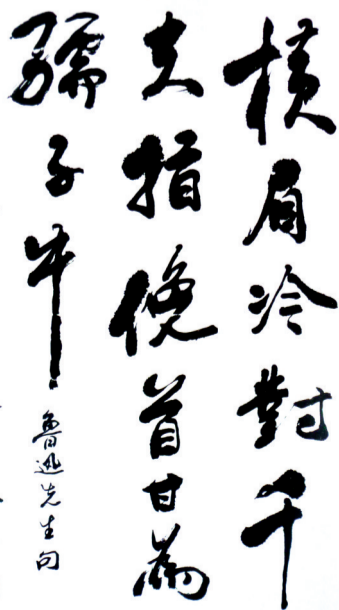 橫眉冷對千
夫指俛首甘為
孺子牛
魯迅先生句